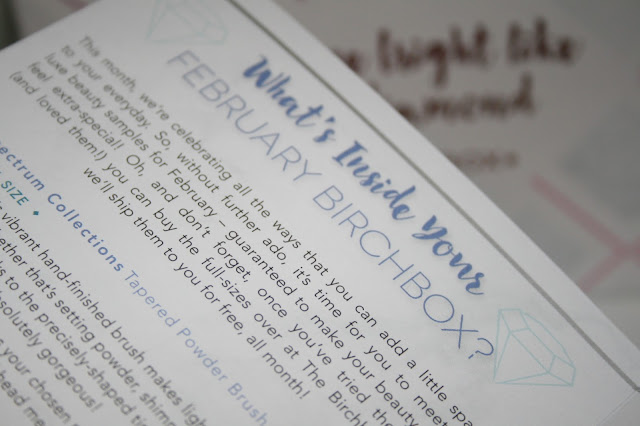 What's Inside Your
FEBRUARY BIRCHBOX?
This month, we're celebrating all the ways that you can add a little spa
to your everyday. So, without further ado, it's time for you to meet
luxe beauty samples for February – guaranteed to make your beauty
feel extra-special! Oh, and don't forget, once you've tried the
(and loved them!) you can buy the full-sizes over at The Birchb
we'll ship them to you for free, all month!
ectrum Collections Tapered Powder Brush
SIZE
vibrant hand-finished brush makes ligh
ether that's setting powder, shimm
s to the precisely-shaped ti
bsolutely gorgeous!
your chosen
ead me
bright like
diamond